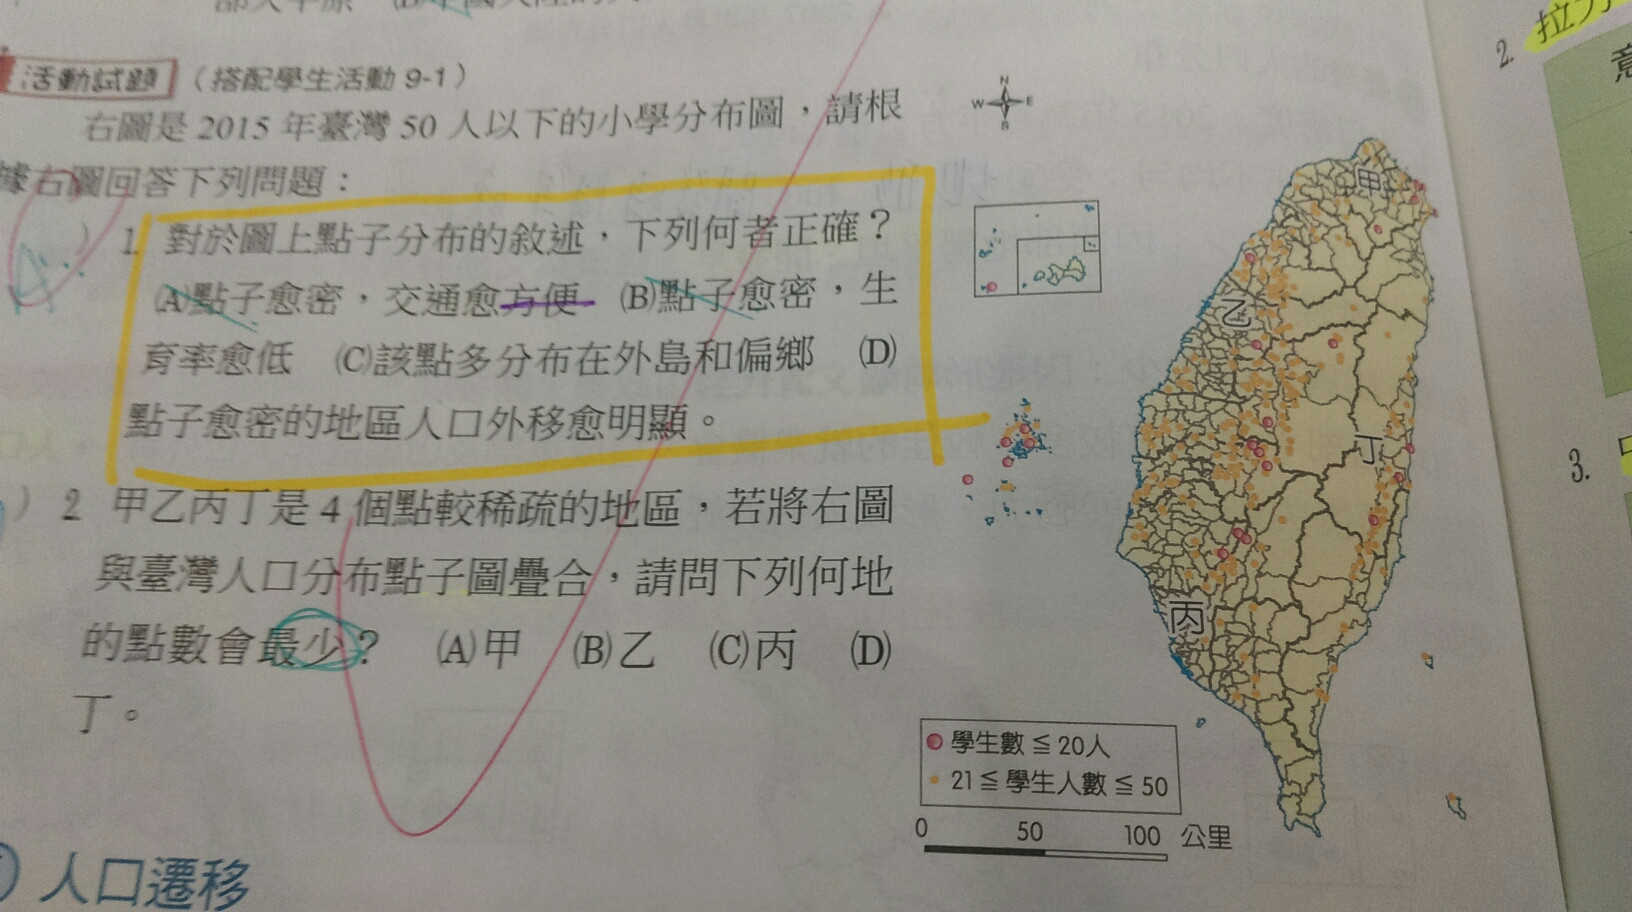 活動試題 （搭配學生活動 9-1）
右圖是 2015 年臺灣 50 人以下的小學分布圖，請根
據右圖回答下列問題：
） 1 對於圖上點子分布的敘述，下列何者正確？
(A)點子愈密，交通愈方便 (B)點子愈密，生
育率愈低 (C)該點多分布在外島和偏鄉 (D)
點子愈密的地區人口外移愈明顯。
） 2 甲乙丙丁是 4 個點較稀疏的地區，若將右圖
與臺灣人口分布點子圖疊合，請問下列何地
的點數會最少？ (A)甲 (B)乙 (C)丙 (D)
丁。
人口遷移
N
W E
S
甲
乙
丁
丙
學生數 ≦ 20人
21 ≦ 學生人數 ≦ 50
0 50 100 公里
2. 拉力
意
3.